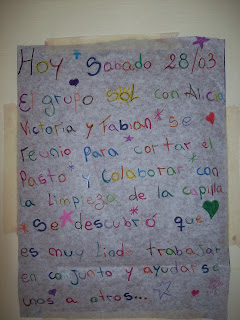 Hoy Sabado 28/03
El grupo SOL con Alicia
Victoria y Fabian se
reunio para cortar el
Pasto y colaborar con
la limpieza de la capilla
Se descubrió que
es muy lindo trabajar
en conjunto y ayudarse
unos a otros...